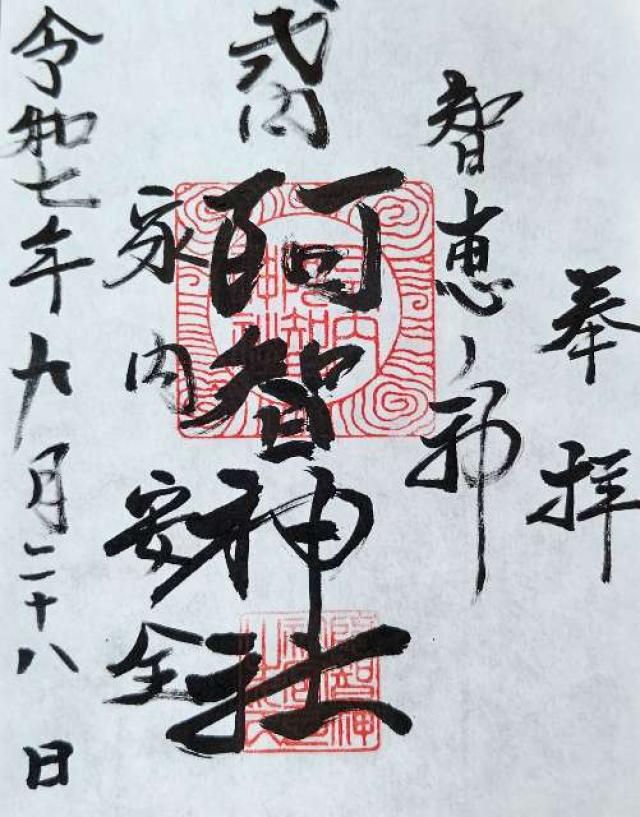 奉拝
智恵ノ神
式内
阿智神社
家内安全
令和七年九月二十八日